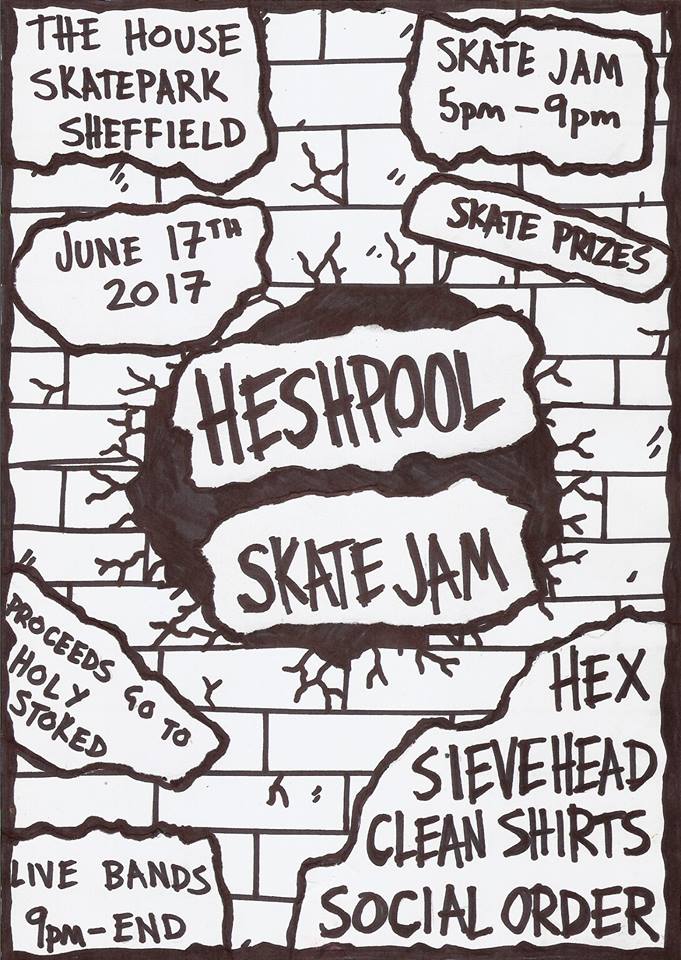 THE HOUSE
SKATEPARK
SHEFFIELD
SKATE JAM
5pm - 9pm
JUNE 17TH
2017
SKATE PRIZES
HESHPOOL
SKATE JAM
PROCEEDS GO TO
HOLY
STOKED
HEX
SIEVEHEAD
CLEAN SHIRTS
SOCIAL ORDER
LIVE BANDS
9pm - END